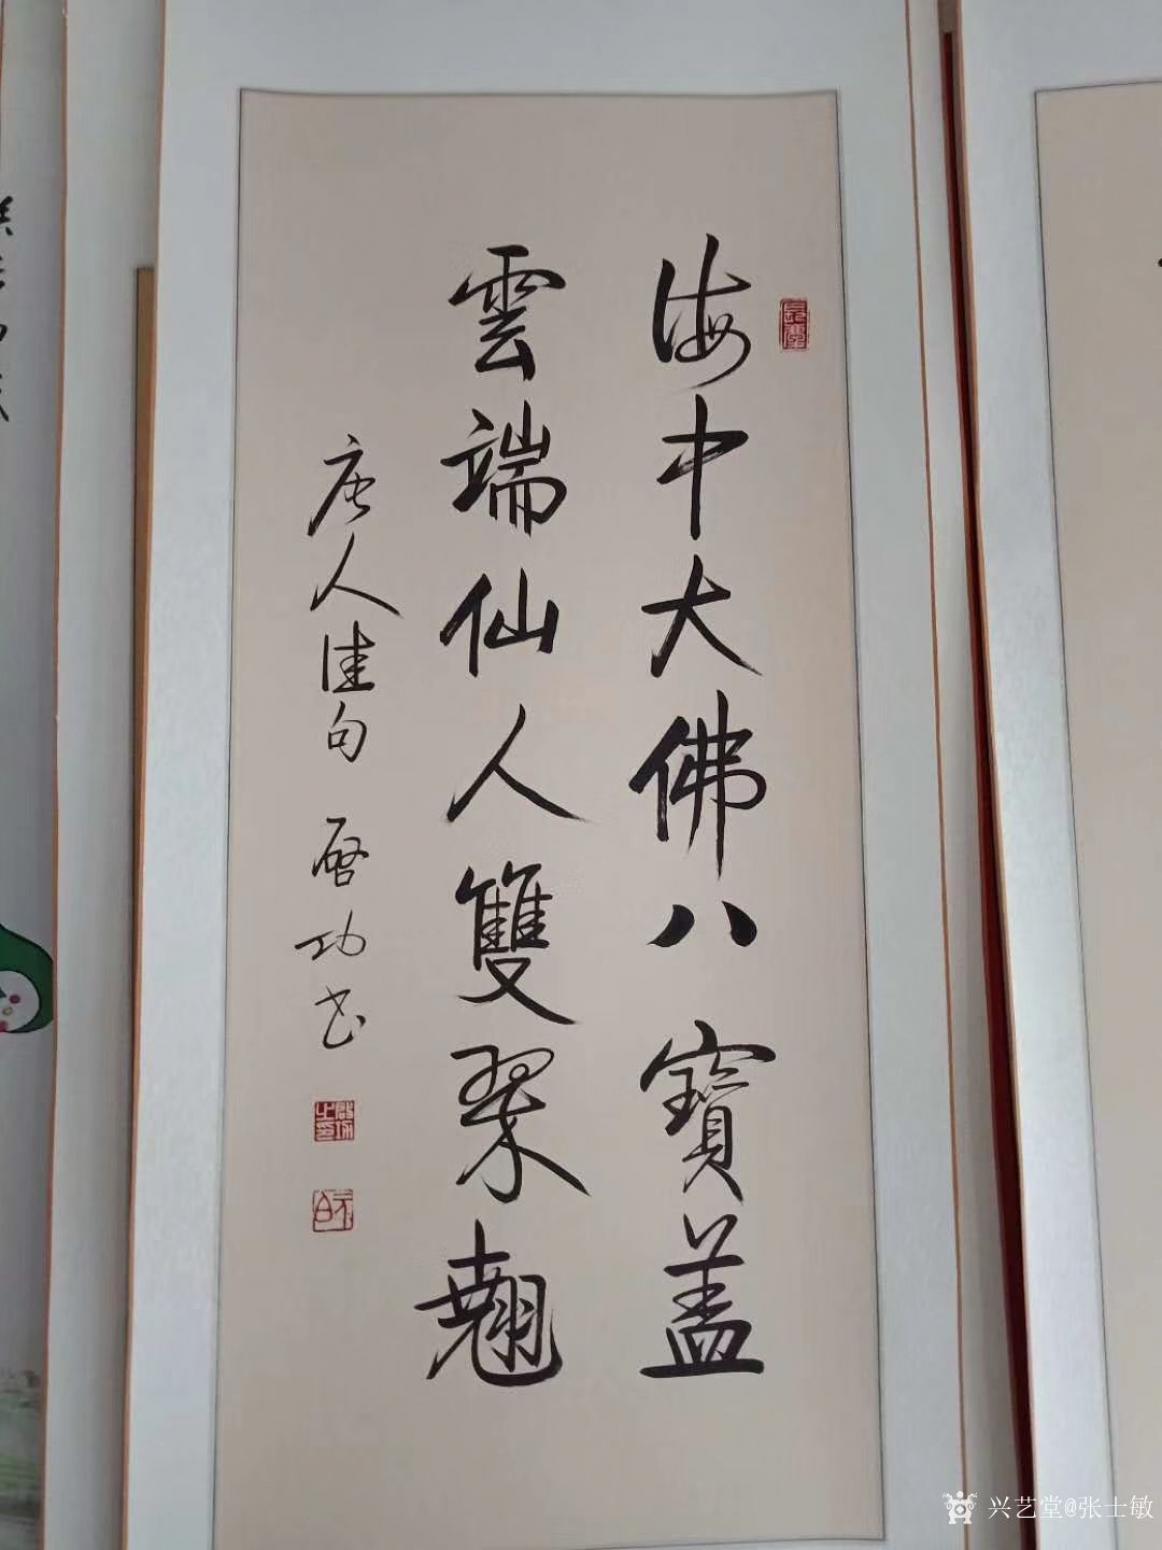 海中大佛八寶盖
雲端仙人雙翠翹
唐人佳句 启功书
兴艺堂@张士敏